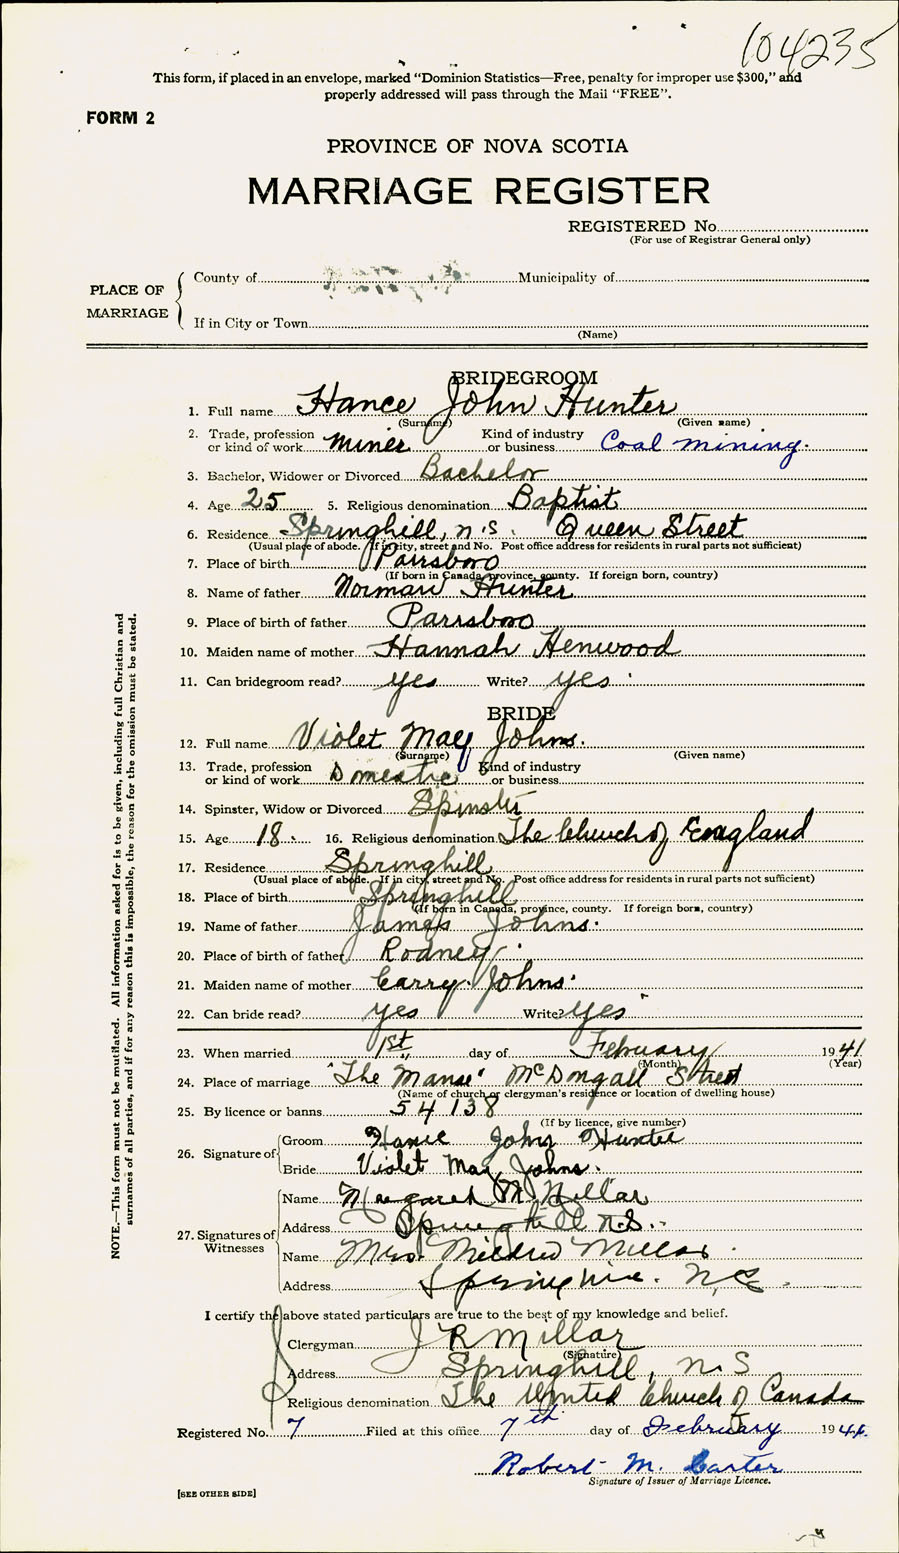 104235
This form, if placed in an envelope, marked "Dominion Statistics—Free, penalty for improper use $300," and
properly addressed will pass through the Mail "FREE".
FORM 2
PROVINCE OF NOVA SCOTIA
MARRIAGE REGISTER
REGISTERED No.
(For use of Registrar General only)
PLACE OF MARRIAGE
County of Municipality of
If in City or Town
(Name)
BRIDEGROOM
1. Full name Hance John Hunter
(Surname) (Given name)
2. Trade, profession or kind of work miner Kind of industry or business Coal mining.
3. Bachelor, Widower or Divorced Bachelor
4. Age 25 5. Religious denomination Baptist
6. Residence Springhill, N.S. Queen Street
(Usual place of abode. If in city, street and No. Post office address for residents in rural parts not sufficient)
7. Place of birth Parrsboro
(If born in Canada, province, county. If foreign born, country)
8. Name of father Norman Hunter
9. Place of birth of father Parrsboro
10. Maiden name of mother Hannah Henwood
11. Can bridegroom read? yes Write? yes
BRIDE
12. Full name Violet May Johns.
(Surname) (Given name)
13. Trade, profession or kind of work Domestic Kind of industry or business
14. Spinster, Widow or Divorced Spinster
15. Age 18. 16. Religious denomination The Church of England
17. Residence Springhill
(Usual place of abode. If in city, street and No. Post office address for residents in rural parts not sufficient)
18. Place of birth Springhill
(If born in Canada, province, county. If foreign born, country)
19. Name of father James Johns.
20. Place of birth of father Rodney.
21. Maiden name of mother Carry Johns.
22. Can bride read? yes Write? yes
23. When married 1st day of February 1941
(Month) (Year)
24. Place of marriage "The Manse" McDongall Street
(Name of church or clergyman's residence or location of dwelling house)
25. By licence or banns 54138
(If by licence, give number)
26. Signature of
Groom Hance John Hunter
Bride Violet May Johns.
27. Signatures of Witnesses
Name Margaret M. Millar
Address Springhill N.S.
Name Mrs. Mildred Millar
Address Springhill. N.S.
I certify the above stated particulars are true to the best of my knowledge and belief.
Clergyman J R Millar
(Signature)
Address Springhill, N.S
Religious denomination The United Church of Canada
Registered No. 7 Filed at this office 7th day of February 1941.
Robert M. Carter
Signature of Issuer of Marriage Licence.
[SEE OTHER SIDE]
NOTE.—This form must not be mutilated. All information asked for is to be given, including full Christian and
surnames of all parties, and if for any reason this is impossible, the reason for the omission must be stated.